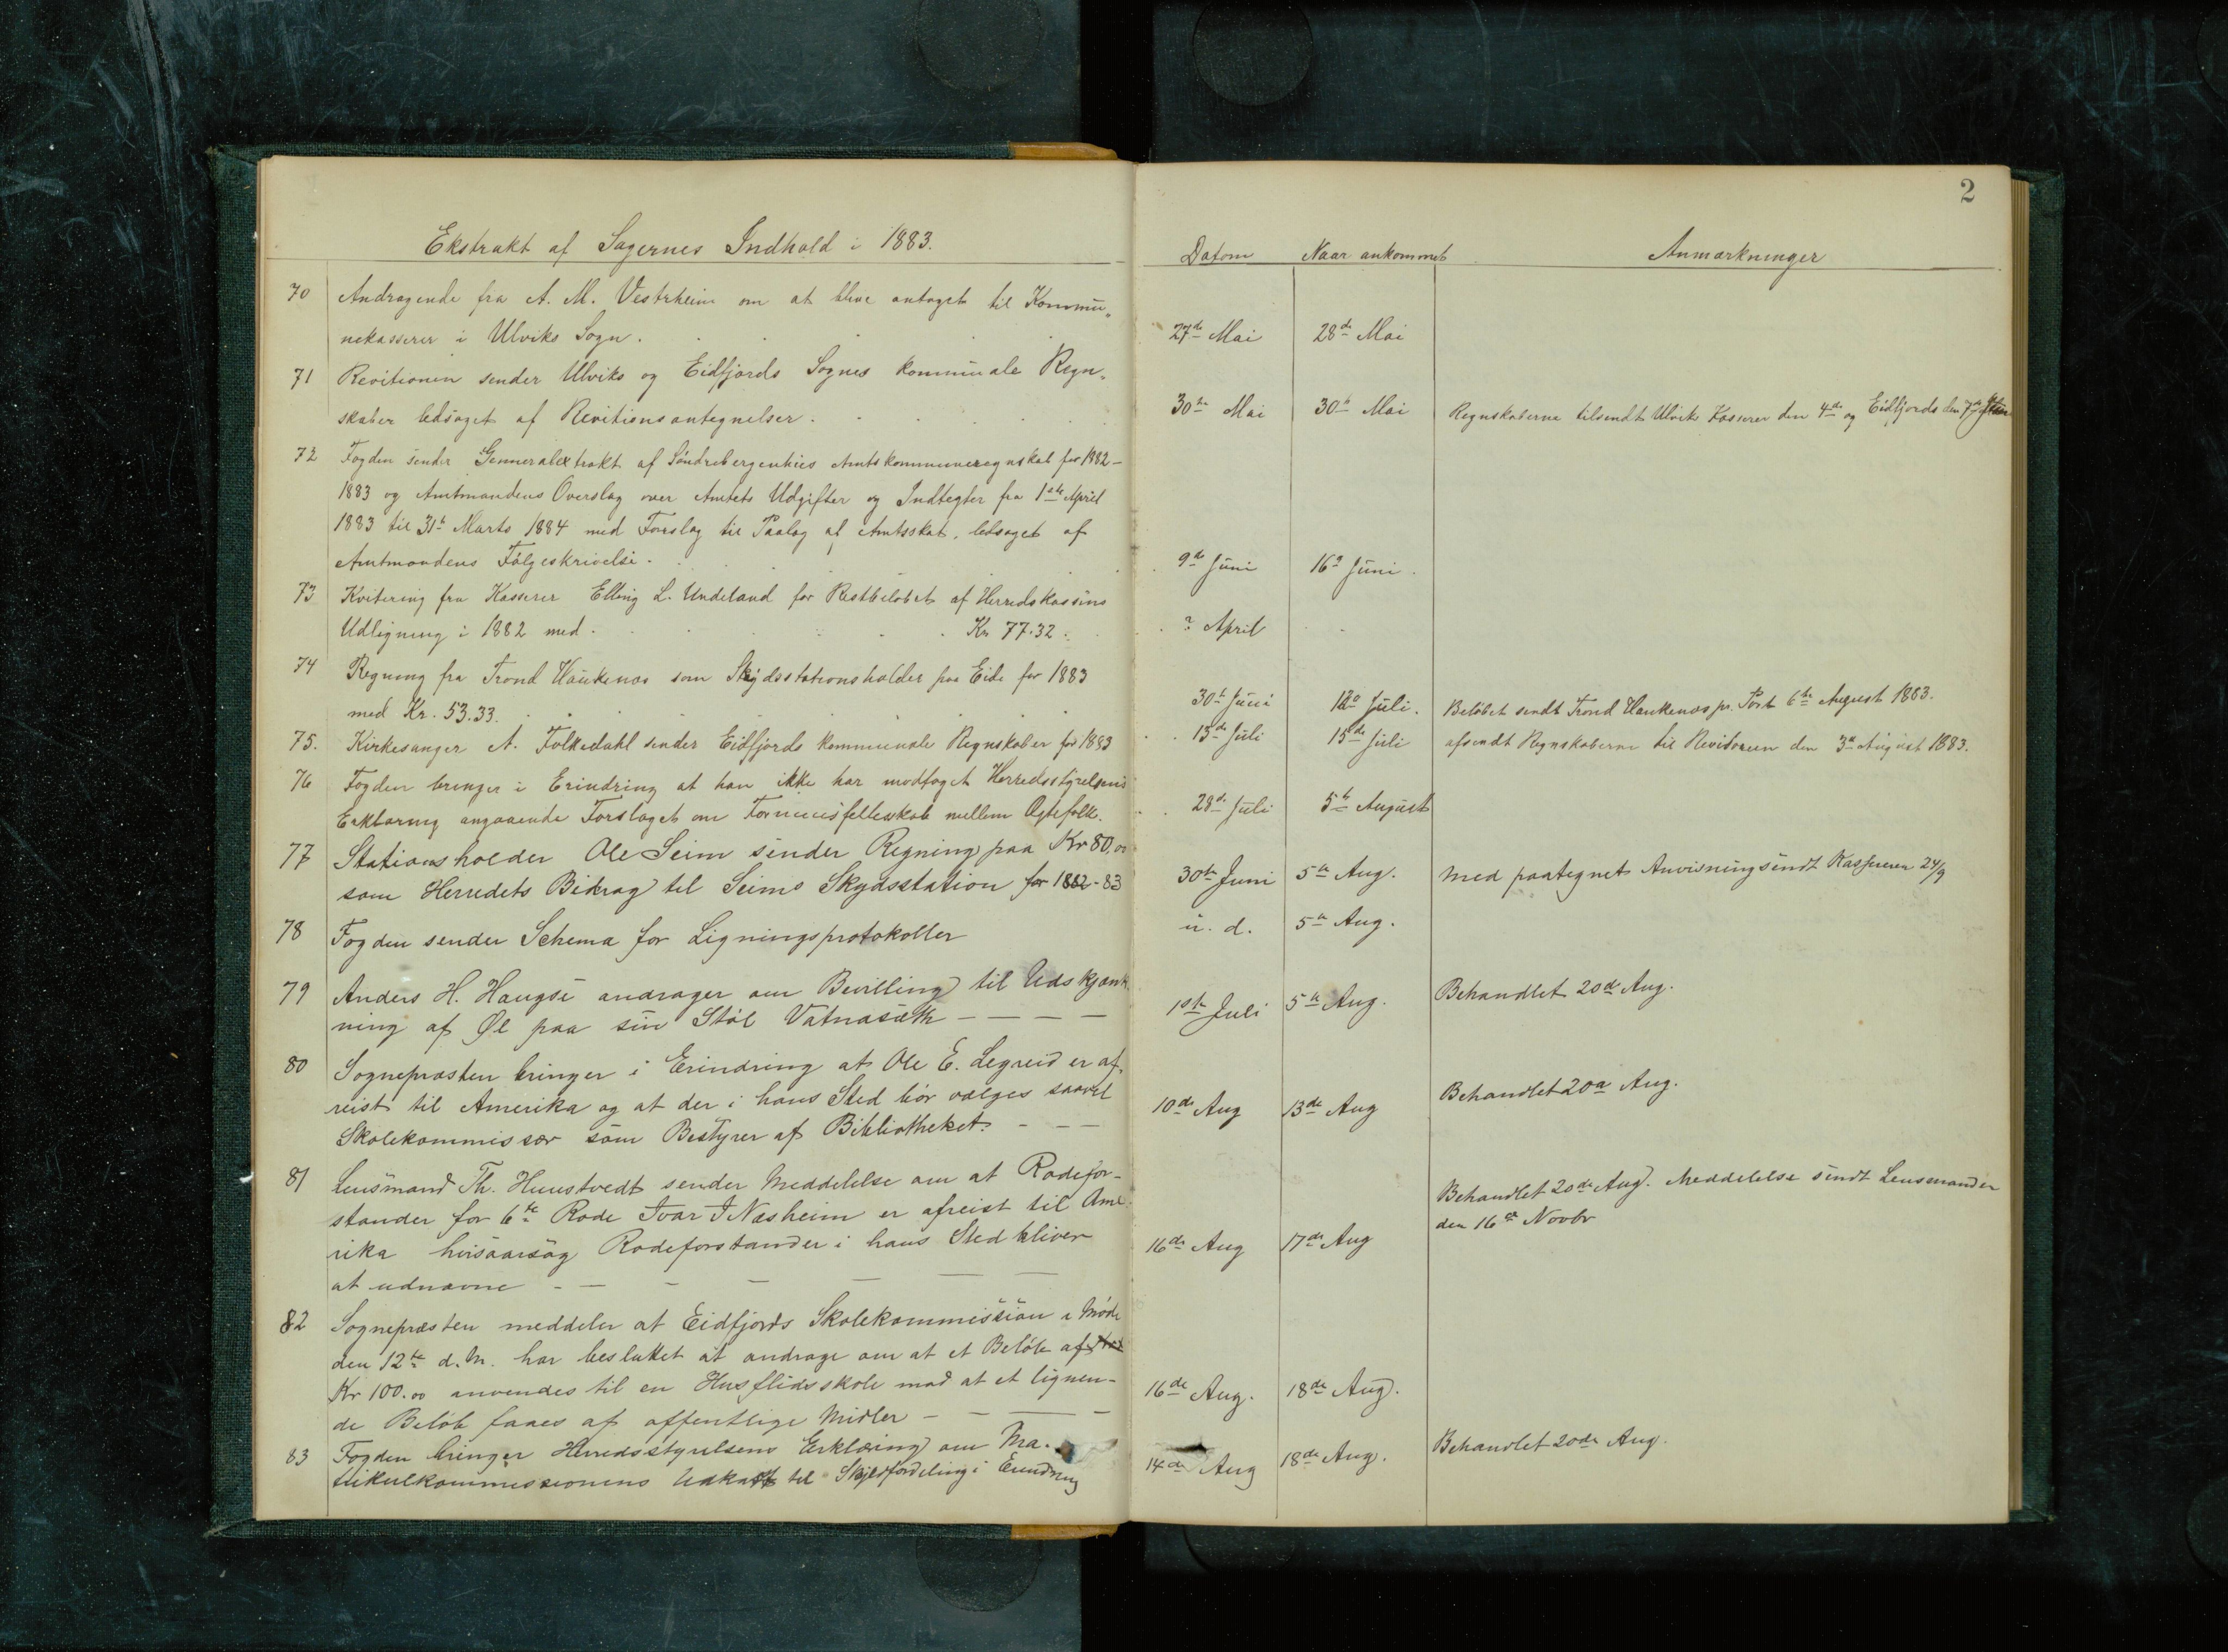 Ekstrakt af Sagernes Indhold i 1883.
70 Andragende fra A. M. Vestrheim om at blive antaget til Kommu„
nekasserer i Ulviks Sogn.
71 Revitionen sender Ulviks og Eidfjords Sognes kommunale Regn„
skaber ledsaget af Revitionsantegnelser.
72 Fogden sender Genneralextrakt af Söndrebergenhus Amtskommuneregnskab for 1882–
1883 og Amtmandens Overslag over Amtets Udgifter og Indtegter fra 1ste April
1883 til 31te Marts 1884 med Forslag til Paalag af Amtsskat, ledsaget af
Amtmandens Fölgeskrivelse.
73 Kvitering fra Kasserer Elling L. Undeland for Restbelöbet af Herredskassens
Udligning i 1882 med Kr 77.32.
74 Regning fra Trond Haukenæs som Skydsstationsholder paa Eide for 1883
med Kr. 53.33.
75. Kirkesanger A. Folkedahl sender Eidfjords kommunale Regnskaber for 1883
76 Fogden bringer i Erindring at han ikke har modtaget Herredsstyrelsens
Erklæring angaaende Forslaget om Formuesfellesskab mellem Ægtefolk.
77 Stationsholder Ole Seim sender Regning paa Kr 80,00
som Herredets Bidrag til Seims Skydsstation for 1882-83
78 Fogden sender Schema for Ligningsprotokoller
79 Anders H. Haugse andrager om Bevilling til Udskjænk
ning af Øl paa sin Støl Vatnasæth – – – –
80 Sognepræsten bringer i Erindring at Ole E. Legreid er af„
reist til Amerika og at der i hans Sted bör vælges saavel
Skolekommissær som Bestyrer af Bibliotheket. – – –
81 Lensmand Th. Hunstvedt sender Meddelelse om at Rodefor-
stander for 6te Rode Ivar I Næsheim er afreist til Ame
rika hvisaarsag Rodeforstander i hans Sted bliver
at udnævne – – – – – –
82 Sognepræsten meddeler at Eidfjords Skolekommission i Möde
den 12te d.M. har besluttet at andrage om at et Belöb af
Kr 100.00 anvendes til en Husflidsskole mod at et lignen-
de Belöb faaes af offentlige Midler – – – –
83 Fogden bringer Herredsstyrelsens Erklæring om Ma-
trikulkommissionens Udkast til Skyldfordeling i Erindring
2
Datom Naar ankommet Anmærkninger
27de Mai 28de Mai
30te Mai 30te Mai Regnskaberne tilsendt Ulvik Kasserer den 4de og Eidfjords den 7de
9de Juni 16de Juni.
? April
30te Juni 12te Juli. Belöbet sendt Trond Haukenæs pr. Post 6te August 1883.
13de Juli 15de Juli afsendt Regnskaberne til Revitoren den 3de August 1883.
28de Juli 5te August
30te Juni 5te Aug. Med paategnet Anvisning sendt Kassereren 24/9
u. d. 5te Aug.
1ste Juli 5te Aug. Behandlet 20de Aug.
10de Aug 13de Aug Behandlet 20de Aug.
16de Aug 17de Aug Behandlet 20de Aug. Meddelelse sendt Lensmanden
den 16de Novbr
16de Aug. 18de Aug.
14de Aug 18de Aug. Behandlet 20de Aug.